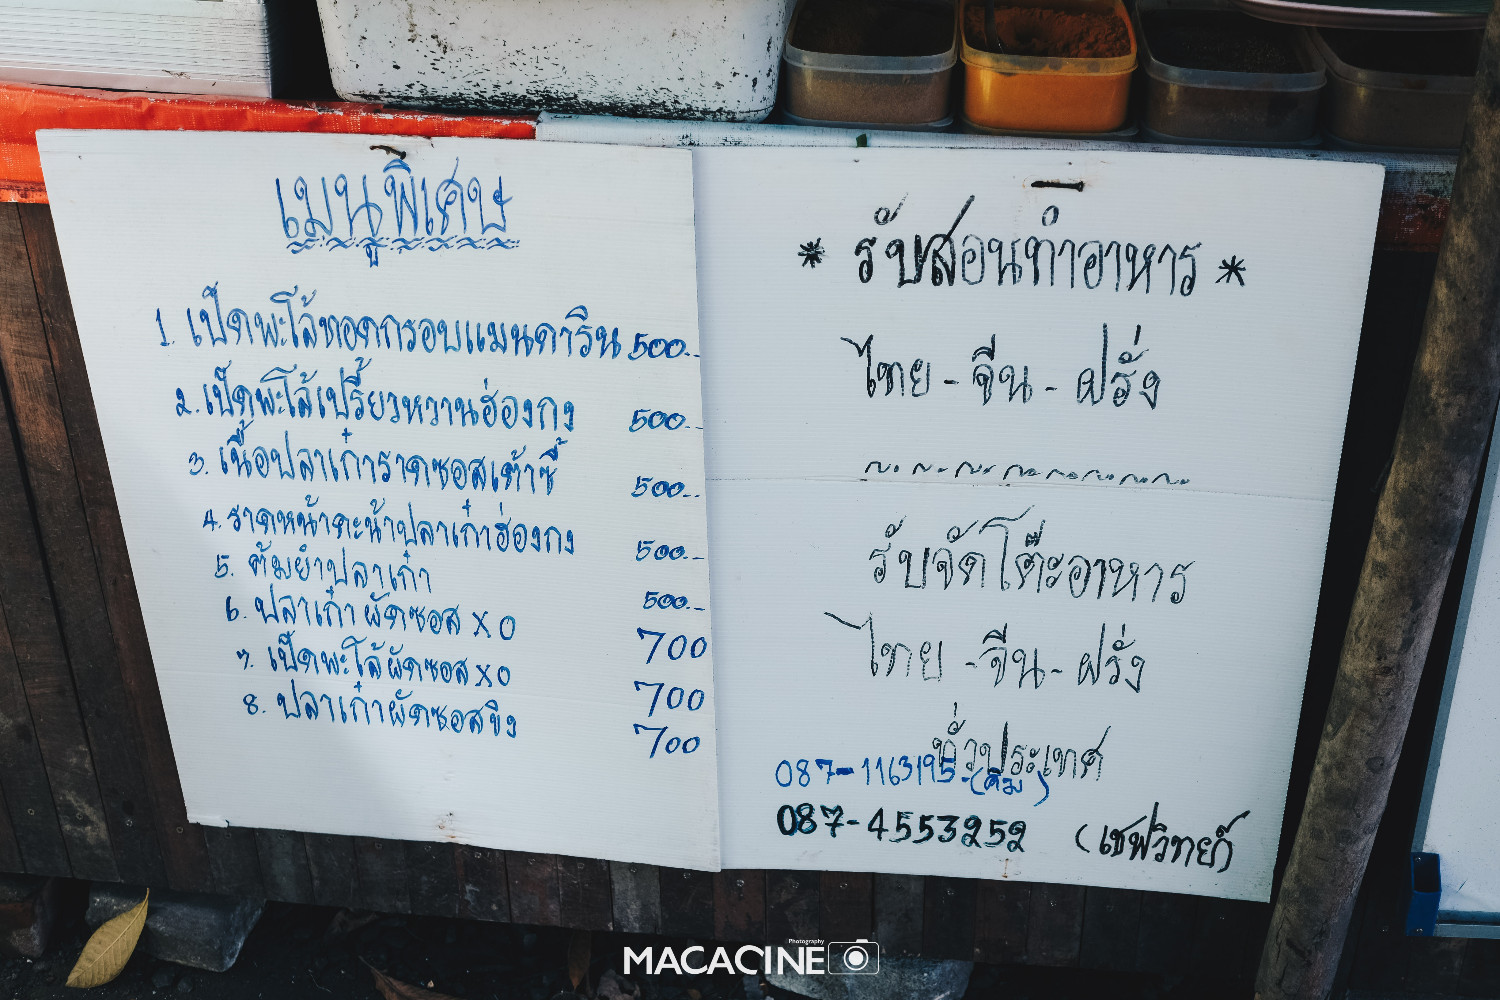 เมนูพิเศษ
1. เป็ดพะโล้ทอดกรอบแมนดาริน 500.-
2. เป็ดพะโล้เปรี้ยวหวานฮ่องกง 500.-
3. เนื้อปลาเก๋าราดซอสเต้าซี้ 500.-
4. ราดหน้าคะน้าปลาเก๋าฮ่องกง 500.-
5. ต้มยำปลาเก๋า 500.-
6. ปลาเก๋าผัดซอส XO 700
7. เป็ดพะโล้ผัดซอส XO 700
8. ปลาเก๋าผัดซอสขิง 700
* รับสอนทำอาหาร *
ไทย - จีน - ฝรั่ง
รับจัดโต๊ะอาหาร
ไทย - จีน - ฝรั่ง
ทั่วประเทศ
087-1163195-(คิม)
087-4553252 (เชฟวิทย์)
Photography
MACACINE